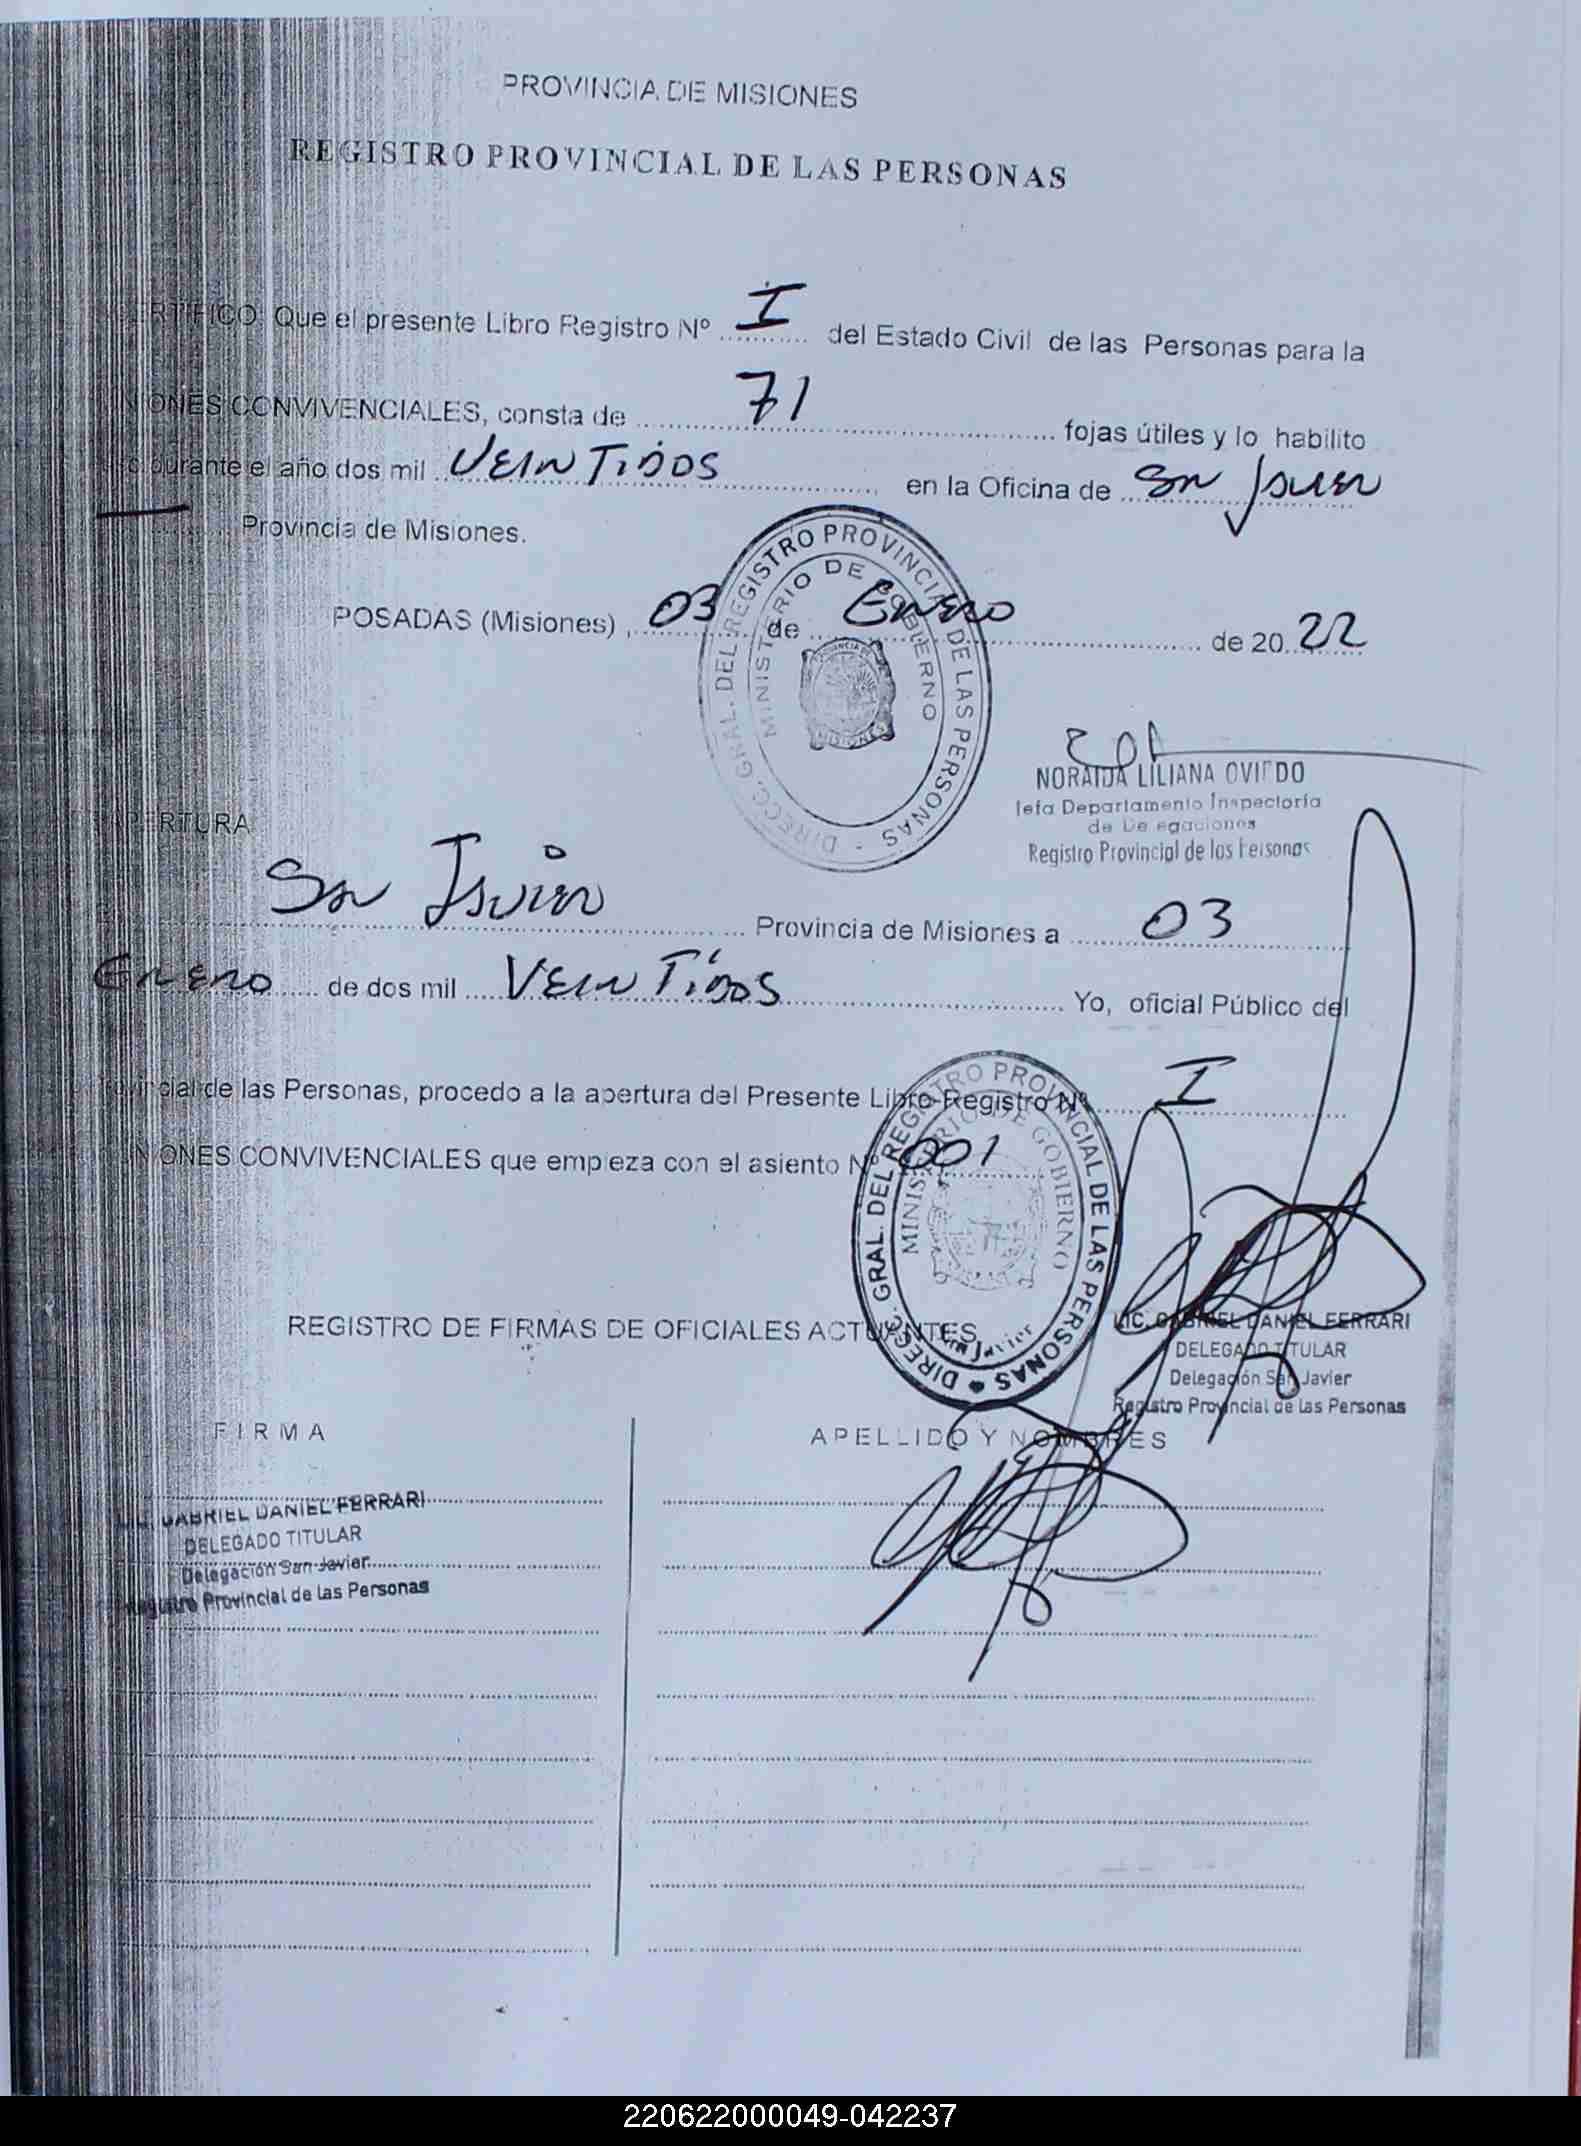 PROVINCIA DE MISIONES
REGISTRO PROVINCIAL DE LAS PERSONAS
RTIFICO Que el presente Libro Registro Nº I del Estado Civil de las Personas para la
NIONES CONVIVENCIALES, consta de 71 fojas útiles y lo habilito
durante el año dos mil VEINTIDOS en la Oficina de Sn Javier
Provincia de Misiones.
POSADAS (Misiones) , 03 de Enero de 2022
DIRECC. GRAL. DEL REGISTRO PROVINCIAL DE LAS PERSONAS -
MINISTERIO DE GOBIERNO
PROVINCIA DE
MISIONES
LILIANA OVIEDO
Jefa Departamento Inspectoría
de Delegaciones
Registro Provincial de las Personas
APERTURA
Sn Javier Provincia de Misiones a 03
Enero de dos mil VEINTIDOS Yo, oficial Público del
Provincial de las Personas, procedo a la apertura del Presente Libro Registro Nº I
NIONES CONVIVENCIALES que empieza con el asiento Nº 001
DIRECC. GRAL. DEL REGISTRO PROVINCIAL DE LAS PERSONAS
MINISTERIO DE GOBIERNO
San Javier
REGISTRO DE FIRMAS DE OFICIALES ACTUANTES
LIC. GABRIEL DANIEL FERRARI
DELEGADO TITULAR
Delegación San Javier
Registro Provincial de las Personas
FIRMA APELLIDO Y NOMBRES
LIC. GABRIEL DANIEL FERRARI
DELEGADO TITULAR
Delegación San Javier
Registro Provincial de las Personas
220622000049-042237